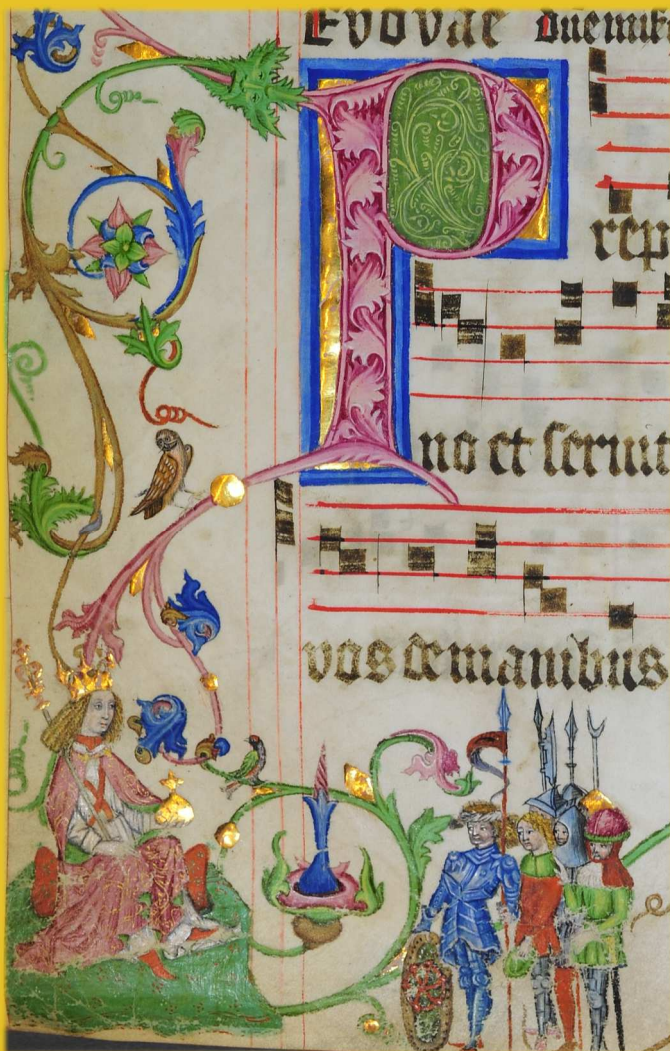 Evovae
Prep
no et seruit
vos de manibus